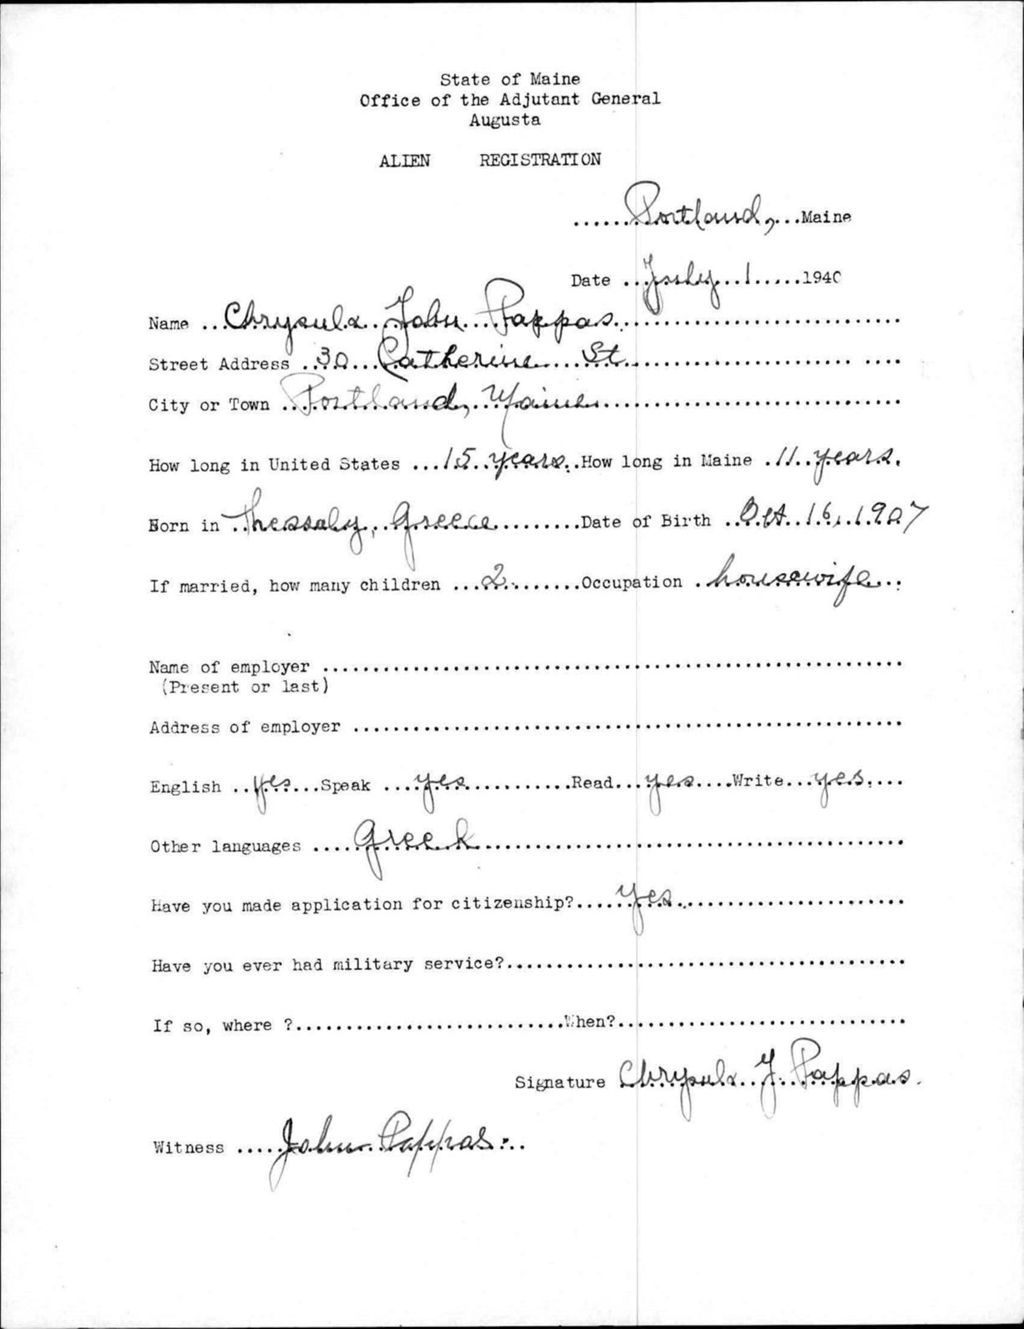 State of Maine
Office of the Adjutant General
Augusta
ALIEN REGISTRATION
......Portland,...Maine
Date ...July..1.....1940
Name ..Chrysula..John...Pappas..................................
Street Address ..30...Catherine....St...............................
City or Town ..Portland, Maine....................................
How long in United States ...15..years..How long in Maine .11..years.
Born in ..Thessaly, Greece..........Date of Birth ..Oct. 16, 1907
If married, how many children ...2........Occupation .housewife...
Name of employer ..........................................................
(Present or last)
Address of employer .......................................................
English ..yes...Speak ....yes.............Read...yes....Write...yes.....
Other languages ....Greek...........................................
Have you made application for citizenship?.....yes.........................
Have you ever had military service?........................................
If so, where ?...........................When?.............................
Signature Chrysula J. Pappas.
Witness .....John Pappas...